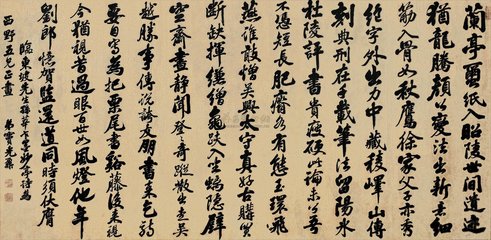 蘭亭繭紙入昭陵世間遺迹
猶龍騰顏公變法出新意細
筋入骨如秋鷹徐家父子亦秀
絕字外出力中藏稜嶧山傳
刻典刑在千載筆法留陽冰
杜陵評書貴瘦硬此論未公吾
不憑短長肥瘠各有態玉環飛
燕誰敢憎吳興太守真好古購買
斷缺揮縑繒龜趺入坐螭隱壁
空齋晝靜聞登登奇蹤散出走吳
越勝事傳說誇友朋書來乞詩
要自寫為把栗尾書谿藤後來視
今猶視昔過眼百世如風燈他年
劉郎憶賀監還道同時須伏膺
臨東坡先生孫莘老求妙亭詩為
西野五兄正 弟